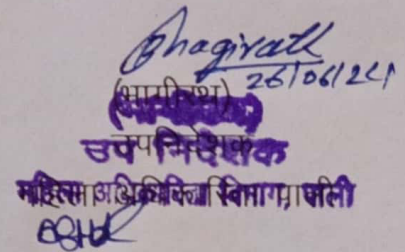 Bhagirath
26/06/24
(भागीरथ)
उप निदेशक
महिला अधिकारिता विभाग, पाली